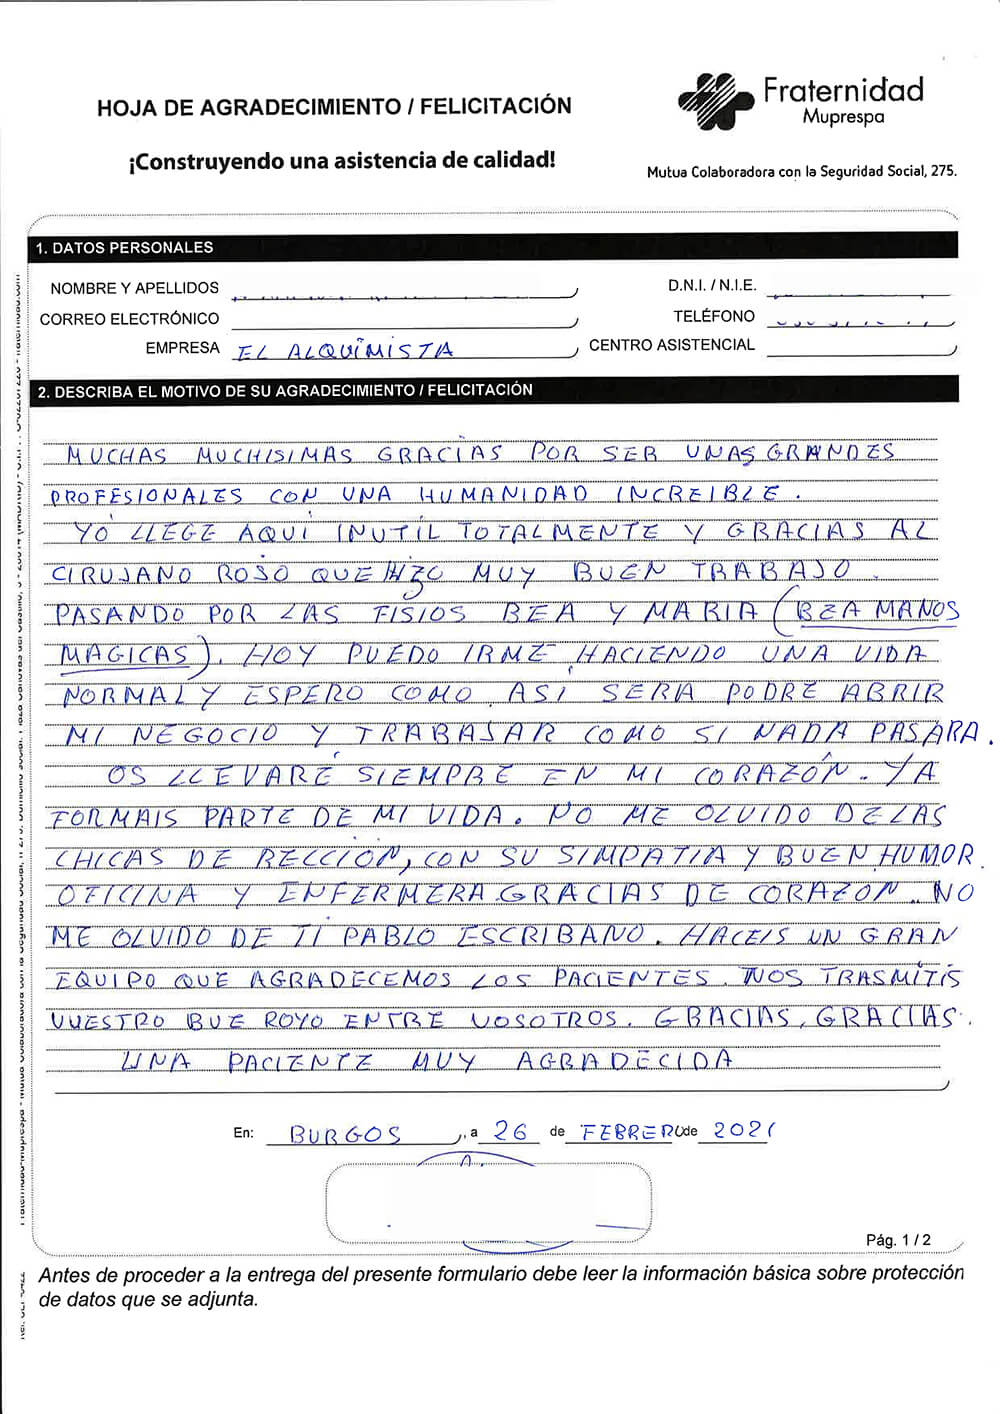 HOJA DE AGRADECIMIENTO / FELICITACIÓN
¡Construyendo una asistencia de calidad!
Fraternidad
Muprespa
Mutua Colaboradora con la Seguridad Social, 275.
1. DATOS PERSONALES
NOMBRE Y APELLIDOS
D.N.I. / N.I.E.
CORREO ELECTRÓNICO
TELÉFONO
EMPRESA EL ALQUIMISTA
CENTRO ASISTENCIAL
2. DESCRIBA EL MOTIVO DE SU AGRADECIMIENTO / FELICITACIÓN
MUCHAS MUCHISIMAS GRACIAS POR SER UNAS GRANDES
PROFESIONALES CON UNA HUMANIDAD INCREIBLE.
YO LLEGE AQUÍ INUTÍL TOTALMENTE Y GRACIAS AL
CIRUJANO ROSO QUE HIZO MUY BUEN TRABAJO.
PASANDO POR LAS FISIOS BEA Y MARIA (BEA MANOS
MAGICAS). HOY PUEDO IRME HACIENDO UNA VIDA
NORMAL Y ESPERO COMO ASÍ SERA PODRE ABRIR
MI NEGOCIO Y TRABAJAR COMO SI NADA PASARA.
OS LLEVARÉ SIEMPRE EN MI CORAZÓN. YA
FORMAIS PARTE DE MI VIDA. NO ME OLVIDO DE LAS
CHICAS DE RECCIÓN, CON SU SIMPATIA Y BUEN HUMOR.
OFICINA Y ENFERMERA. GRACIAS DE CORAZON. NO
ME OLVIDO DE TI PABLO ESCRIBANO. HACEIS UN GRAN
EQUIPO QUE AGRADECEMOS LOS PACIENTES. NOS TRASMITÍS
VUESTRO BUE ROYO ENTRE VOSOTROS. GRACIAS, GRACIAS.
UNA PACIENTE MUY AGRADECIDA
En: BURGOS, a 26 de FEBRERO de 2021
Pág. 1 / 2
Antes de proceder a la entrega del presente formulario debe leer la información básica sobre protección
de datos que se adjunta.